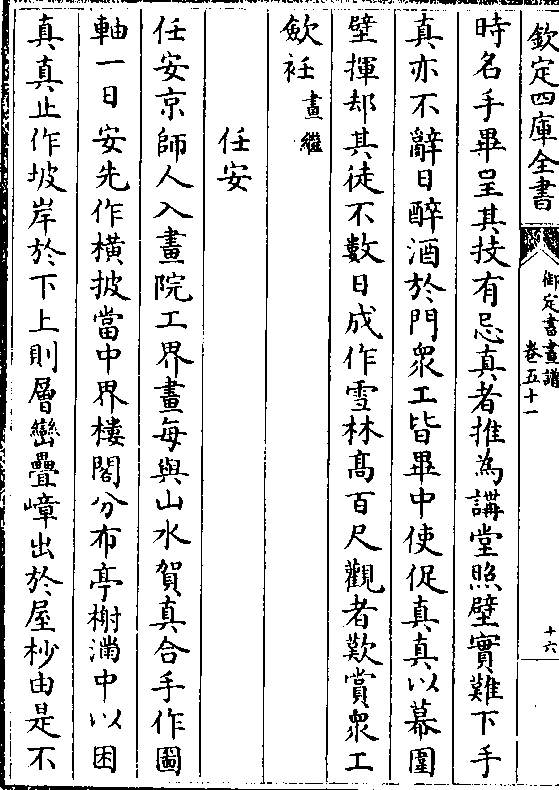 欽定四庫全書
御定書畫譜
卷五十一
十六
時名手畢呈其技有忌真者推為講堂照壁實難下手
真亦不辭日醉酒於門衆工皆畢中使促真真以幕圍
壁揮却其徒不數日成作雪林髙百尺觀者歎賞衆工
歛衽畫繼
任安
任安京師人入畫院工界畫每與山水賀真合手作圖
軸一日安先作橫披當中界樓閣分布亭榭滿中以困
真真止作坡岸於下上則層巒疊嶂出於屋杪由是不